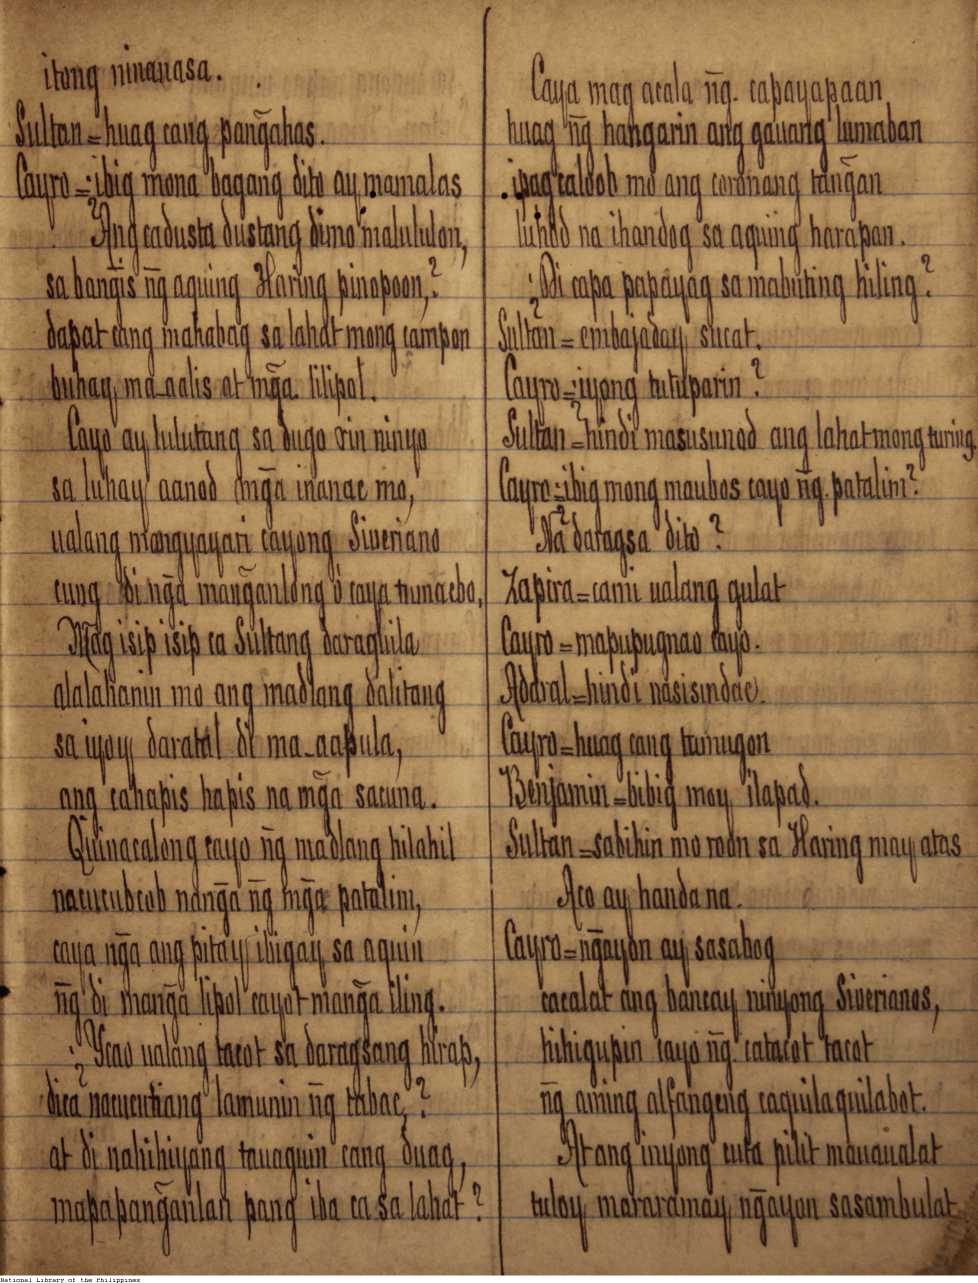 itong ninanasa.
Sultan = huag cang pang̃ahas.
Cayro = ¿ibig mona bagang dito ay mamalas
¿Ang cadusta dustang dimo malululon,
sa bang̃is n̄g aquing Haring pinopoon,?
dapat cang mahabag sa lahat mong campon
buhay, ma_aalis at mg̃a lilipol.
Cayo ay lulutang sa dugo rin ninyo
sa luhay aanod mg̃a inanac mo,
ualang mangyayari cayong Siveriano
cung di ng̃a mang̃anlong ó caya tumacbo,
Mag isip isip ca Sultang daraquila
alalahanin mo ang madlang dalitang
sa iyoy, daratal di ma_aapula,
ang cahapis hapis na mg̃a sacuna.
Quinacalong cayo n̄g madlang hilahil
nacucubcob nang̃a n̄g mg̃a patalim,
caya ng̃a ang pitay, ibigay sa aquin
n̄g di mang̃a lipol cayot mang̃a iling.
¿Ycao ualang tacot sa daragsang hirap,
dica nacucutiang lamunin n̄g tabac,?
at di nahihiyang tauaguin cang duag,
mapapang̃anlan pang iba ca sa lahat?
Caya mag acala n̄g. capayapaan
huag n̄g hangarin ang gauang lumaban
ipagcaloob mo ang coronang tang̃an
luhod na ihandog sa aquing harapan.
¿Di capa papayag sa mabuting hiling?
Sultan = embajaday, sucat.
Cayro = ¿iyong tutuparin?
Sultan = hindi masusunod ang lahat mong turing,
Cayro = ¿ibig mong maubos cayo n̄g. patalim?
Na daragsa dito?
Zapira = cami ualang gulat
Cayro = mapupugnao cayo.
Adaral = hindi nasisindac.
Cayro = huag cang tumugon
Benjamin = bibig moy, ilapad.
Sultan = sabihin mo roon sa Haring may, atas
Aco ay handa na.
Cayro = ng̃ayon ay sasabog
cacalat ang bancay ninyong Siverianos,
hihigupin cayo n̄g. catacot tacot
n̄g aming alfangeng caquilaquilabot.
At ang inyong cuta pilit mauaualat
tuloy, mararamay, ng̃ayon sasambulat
National Library of the Philippines